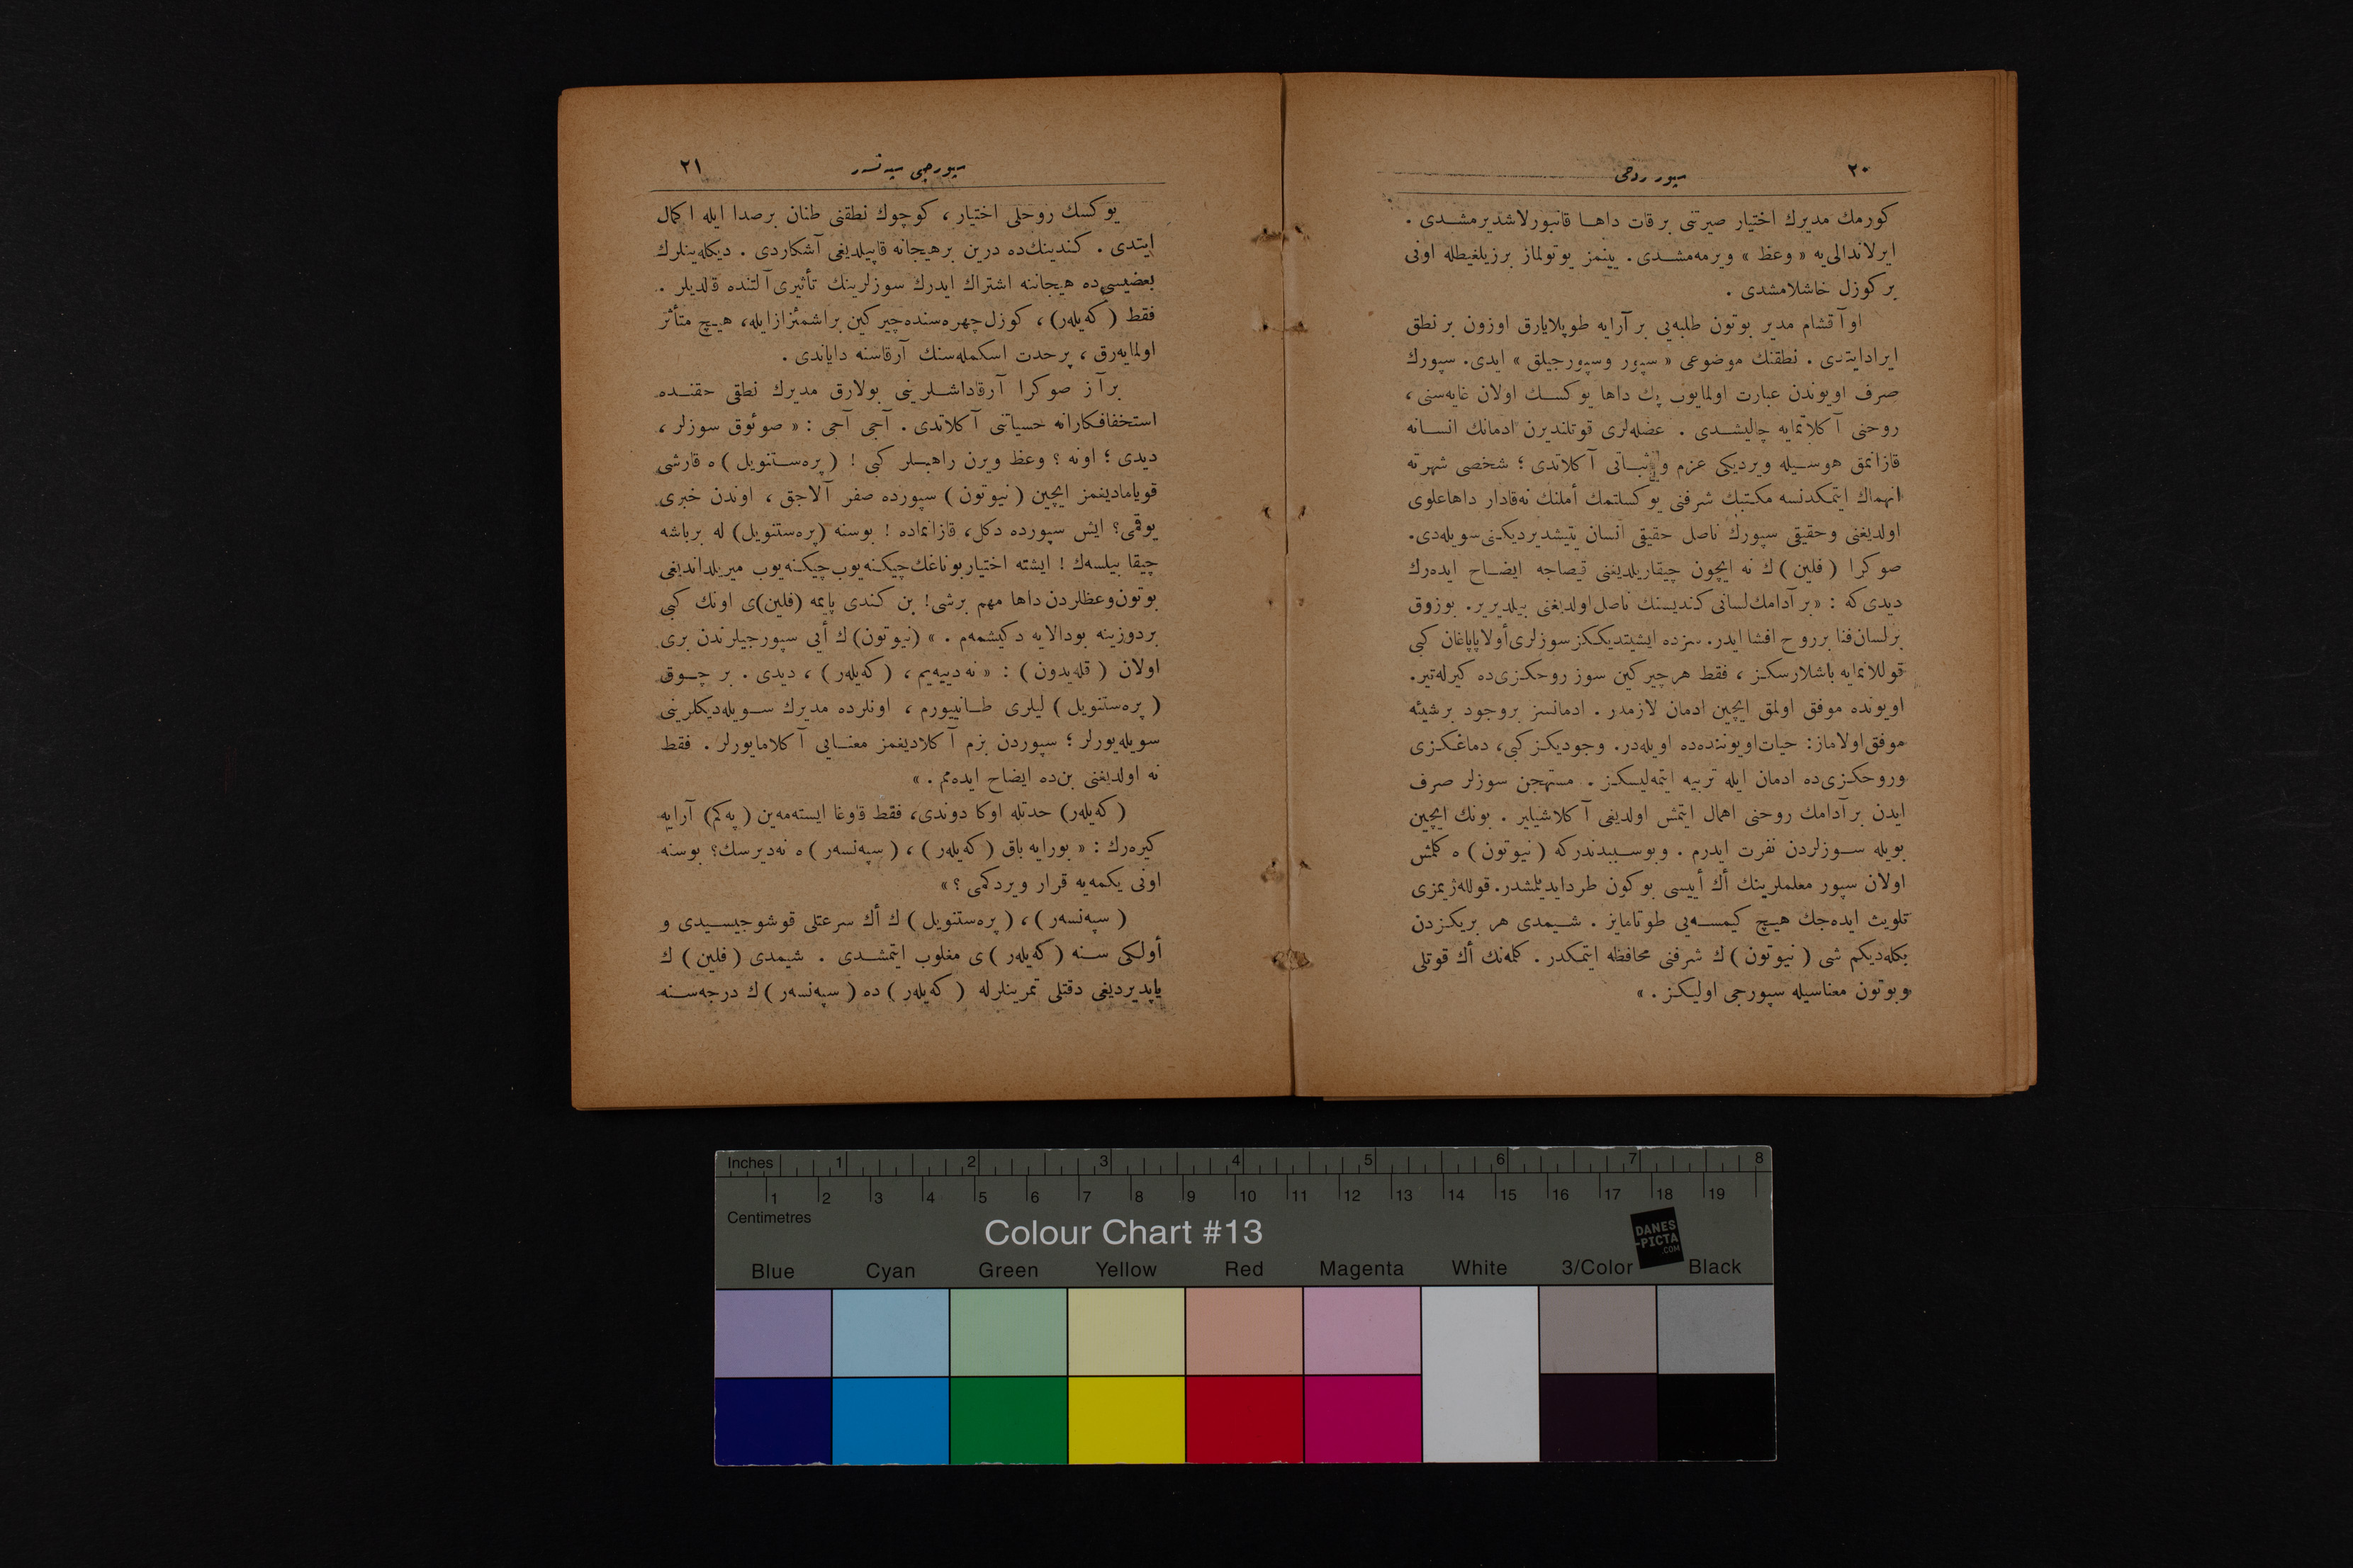 ٢٠
سپور روحی
كورمك مديرك اختيار صيرتنی بر قات داها قانبورلاشديرمشدی .
ايرلاندالی‌يه « وعظ » ويرمه‌مشدی. يينمز يوتولماز برزيلغيطله اونی
بر كوزل خاشلامشدی .
او آقشام مدير بوتون طلبه‌يی بر آرايه طوپلايارق اوزون بر نطق
ايراد ايتدی . نطقنك موضوعی « سپور وسپورجيلق » ايدی. سپورك
صرف اويوندن عبارت اولمايوب پك داها يوكسك اولان غايه‌سنی ،
روحنی آكلاتمايه چاليشدی . عضله‌لری قوتلنديرن ادمانك انسانه
قازانمق هوسيله ويرديكی عزم و ثباتی آكلاتدی ؛ شخصی شهرته
انهماك ايتمكدنسه مكتبك شرفنی يوكسلتمك أملنك نه‌قادار داها علوی
اولديغنی وحقيقی سپورك ناصل حقيقی انسان يتيشديرديكنی سويله‌دی.
صوكرا (فلين) ك نه ايچون چيقاريلديغنی قيصاجه ايضاح ايده‌رك
ديدی كه : « بر آدامك لسانی كنديسنك ناصل اولديغنی بيلديرير. بوزوق
بر لسان فنا بر روح افشا ايدر. سزده ايشيتديككز سوزلری أولا پاپاغان كبی
قوللانمايه باشلارسكز ، فقط هر چيركين سوز روحكزی‌ده كيرله‌تير.
اويونده موفق اولمق ايچين ادمان لازمدر . ادمانسز بر وجود بر شيئه
موفق اولاماز: حيات اويوننده‌ده اويله‌در. وجوديكز كبی، دماغكزی
وروحكزی‌ده ادمان ايله تربيه ايتمه‌ليسكز . مستهجن سوزلر صرف
ايدن بر آدامك روحنی اهمال ايتمش اولديغی آكلاشيلير . بونك ايچين
بويله سوزلردن نفرت ايدرم . وبوسببدندركه (نيوتون) ه كلمش
اولان سپور معلملرينك أك أييسی بوكون طرد ايديلمشدر. قولله‌ژيمزی
تلويث ايده‌جك هيچ كيمسه‌يی طوتامايز . شيمدی هر بريكزدن
بكله‌ديكم شی (نيوتون) ك شرفنی محافظه ايتمكدر . كلمه‌نك أك قوتلی
وبوتون معناسيله سپورجی اوليكز . »
٢١
سپورجی سپه‌نسه‌ر
يوكسك روحلی اختيار ، كوچوك نطقنی طنان بر صدا ايله اكمال
ايتدی . كندينك‌ده درين بر هيجانه قاپيلديغی آشكاردی . ديكله‌ينلرك
بعضيسی‌ده هيجاننه اشتراك ايدرك سوزلرينك تأثيری آلتنده قالديلر .
فقط (كه‌يله‌ر) ، كوزل چهره‌سنده چيركين بر اشمئزاز ايله، هيچ متأثر
اولمايه‌رق ، پر حدت اسكمله‌سنك آرقاسنه داياندی .
بر آز صوكرا آرقاداشلرينی بولارق مديرك نطقی حقنده
استخفافكارانه حسياتنی آكلاتدی . آجی آجی : « صوئوق سوزلر ،
ديدی ؛ او نه ؟ وعظ ويرن راهبلر كبی ! (پره‌ستنويل) ه قارشی
قويامادیغمز ايچين (نيوتون) سپورده صفر آلاجق ، اوندن خبری
يوقمی؟ ايش سپورده دكل، قازانماده ! بوسنه (پره‌ستنويل) له بر باشه
چيقا بيلسه‌ك ! ايشته اختيار بوناغك چيكنه‌يوب چيكنه‌يوب ميريلداندیغی
بوتون وعظلردن داها مهم بر شی! بن كندی پايمه (فلين)ی اونك كبی
بر دوزينه بودالايه دكيشمه‌م . » (نيوتون) ك أيی سپورجيلرندن بری
اولان (قله‌يدون) : « نه دييه‌يم ، (كه‌يله‌ر) ، ديدی . بر چوق
(پره‌ستنويل) ليلری طانييورم ، اونلرده مديرك سويله‌ديكلرينی
سويله‌يورلر ؛ سپوردن بزم آكلاديغمز معنايی آكلامايورلر . فقط
نه اولديغنی بن‌ده ايضاح ايده‌مم . »
(كه‌يله‌ر) حدتله اوكا دوندی، فقط قاوغا ايسته‌مه‌ين (په‌كم) آرايه
كيره‌رك : « بورايه باق (كه‌يله‌ر) ، (سپه‌نسه‌ر) ه نه‌ديرسك؟ بوسنه
اونی يكمه‌يه قرار ويردكمی ؟ »
(سپه‌نسه‌ر) ، (پره‌ستنويل) ك أك سرعتلی قوشوجيسيدی و
أولكی سنه (كه‌يله‌ر) ی مغلوب ايتمشدی . شيمدی (فلين) ك
ياپديرديغی دقتلی تمرينلرله (كه‌يله‌ر) ده (سپه‌نسه‌ر) ك درجه‌سنه
Inches 1 2 3 4 5 6 7 8
1 2 3 4 5 6 7 8 9 10 11 12 13 14 15 16 17 18 19
Centimetres
Colour Chart #13
DANES
-PICTA
.COM
Blue Cyan Green Yellow Red Magenta White 3/Color Black